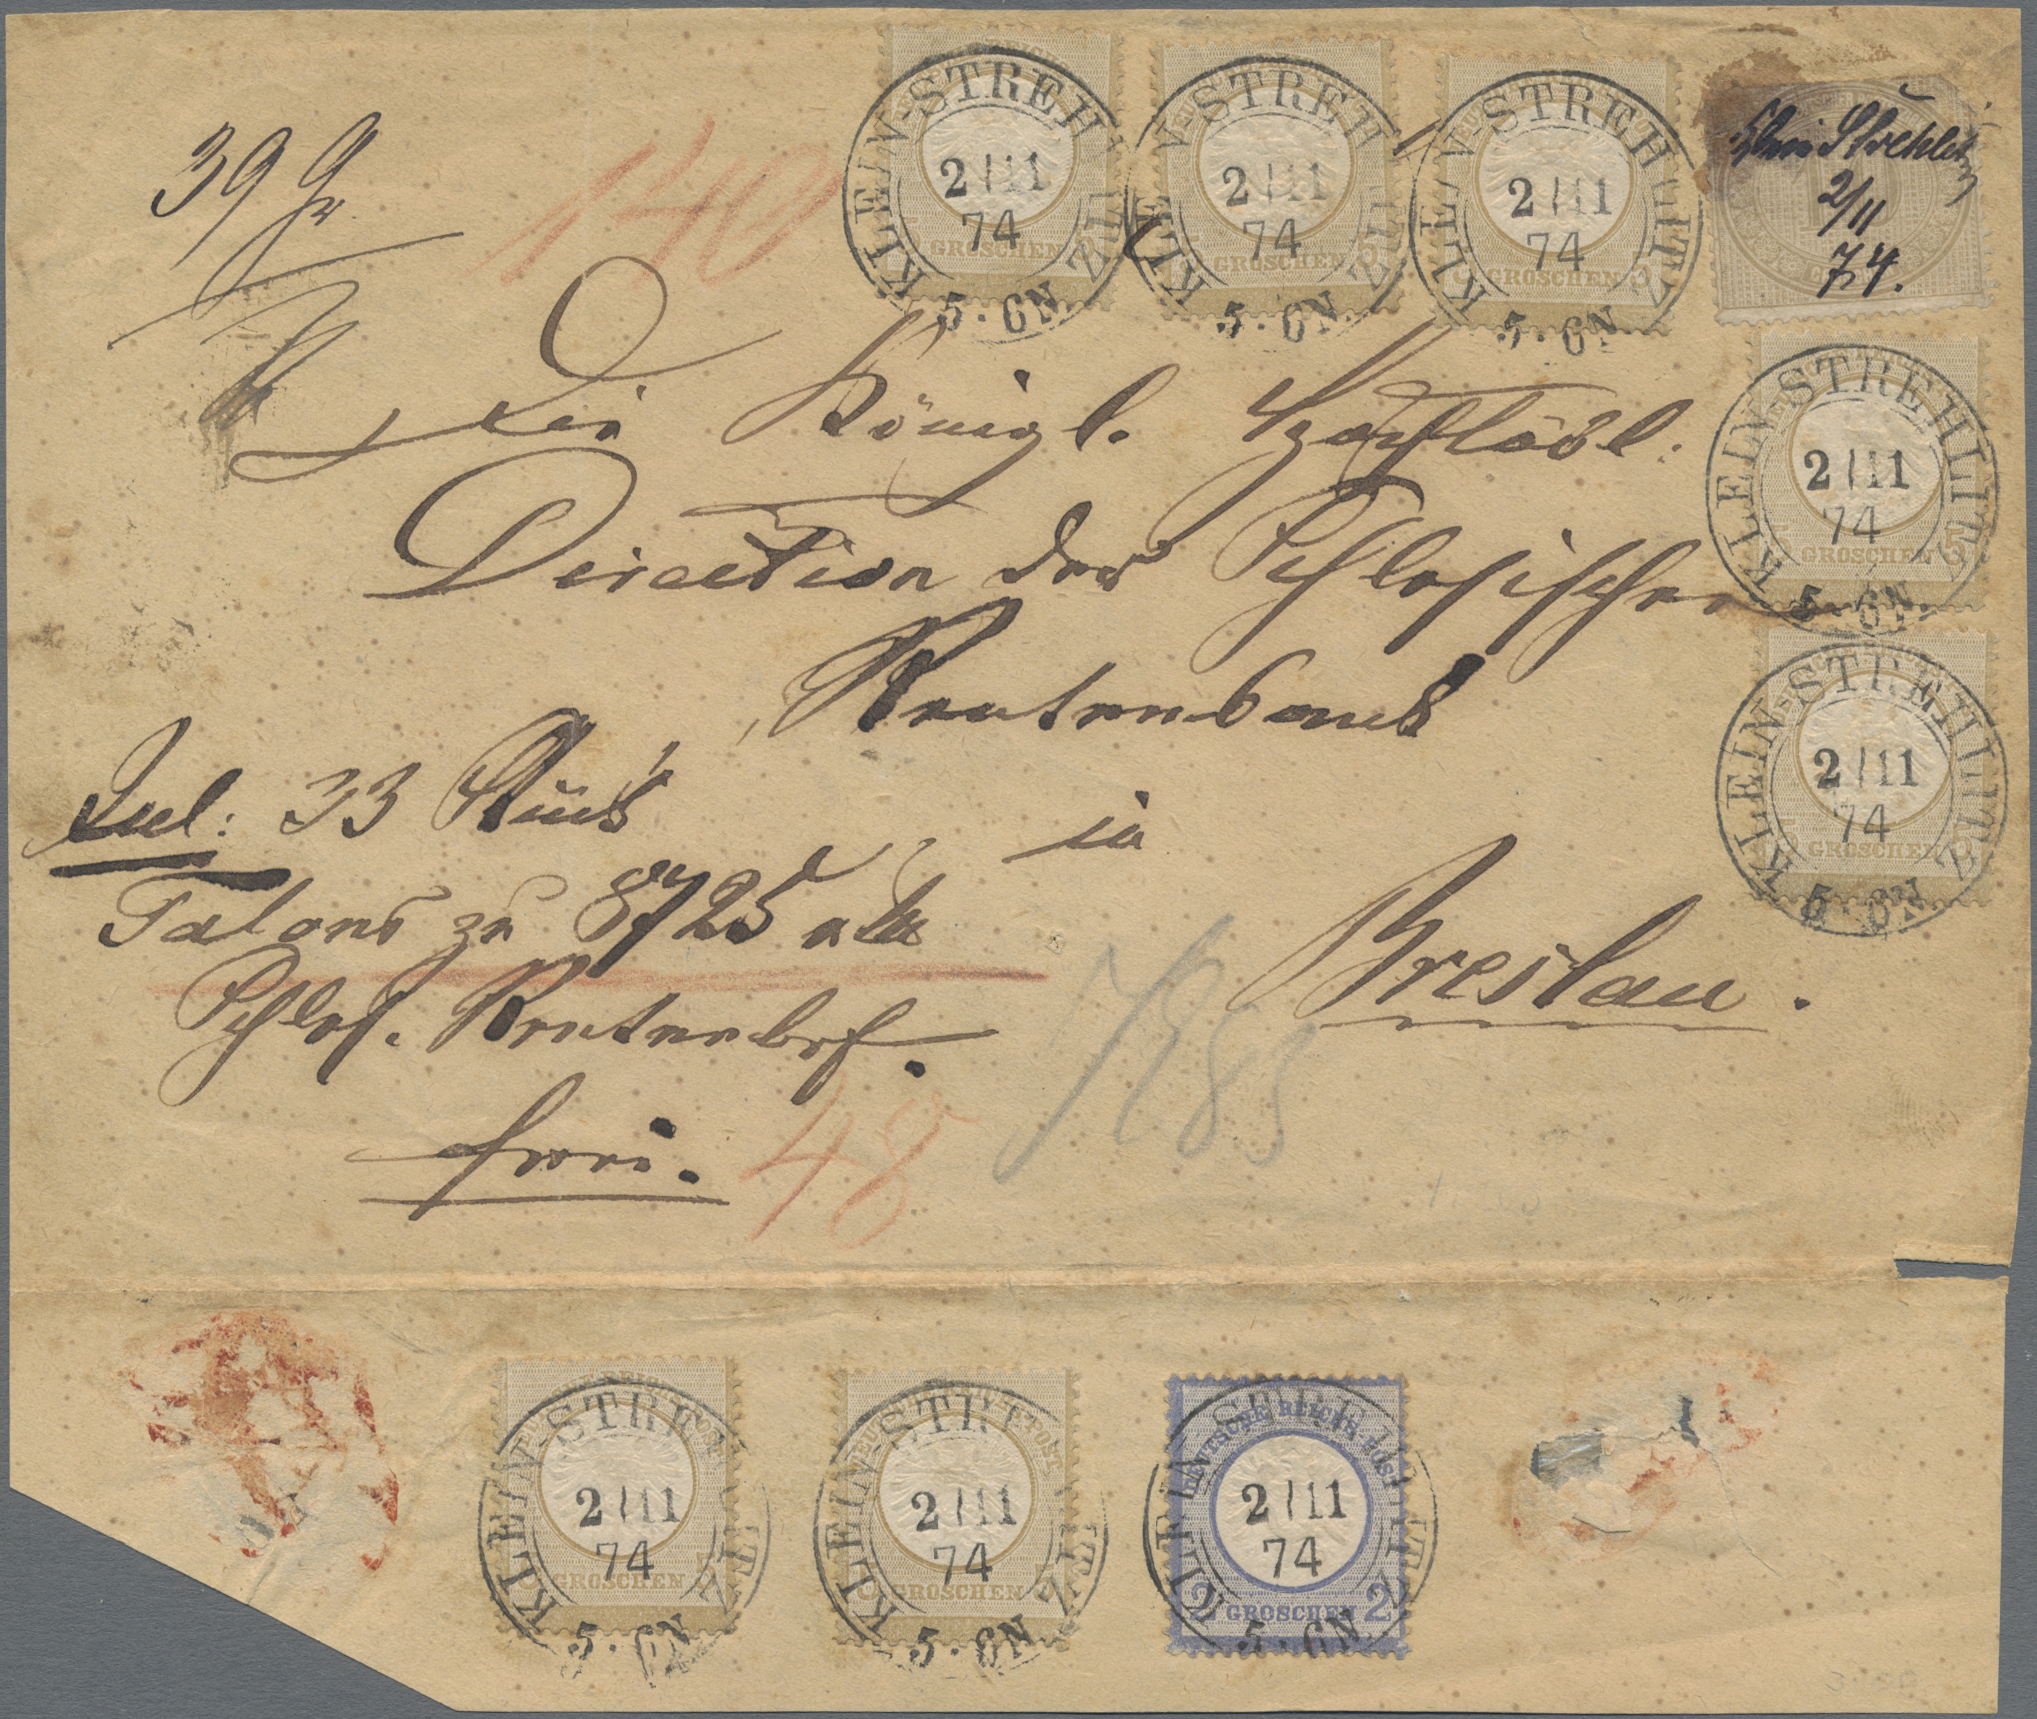 39 Gr
140
KLEIN-STREHLITZ
2 11
74
5-6N
GROSCHEN 5
KLEIN-STREHLITZ
2 11
74
5-6N
GROSCHEN 5
KLEIN-STREHLITZ
2 11
74
5-6N
5 GROSCHEN 5
Klein Strehlitz
2/11
74.
Die Königl. Hochlöbl.
Direction der Schlesischen
Rentenbank
in
Breslau.
KLEIN-STREHLITZ
2 11
74
5-6N
5 GROSCHEN 5
KLEIN-STREHLITZ
2 11
74
5-6N
5 GROSCHEN 5
Incl: 33 Stück
Talons zu 8725 rtl
Schles. Rentenbrf.
frei.
48
KLEIN-STREHLITZ
2 11
74
5-6N
5 GROSCHEN 5
KLEIN-STREHLITZ
2 11
74
5-6N
5 GROSCHEN 5
DEUTSCHE REICHS-POST
KLEIN-STREHLITZ
2 11
74
5-6N
2 GROSCHEN 2